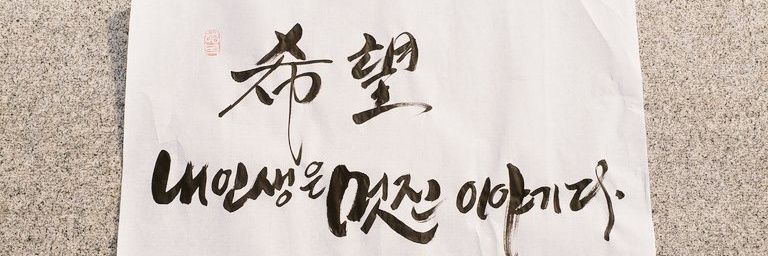 希望
내 인생은 멋진 이야기다.